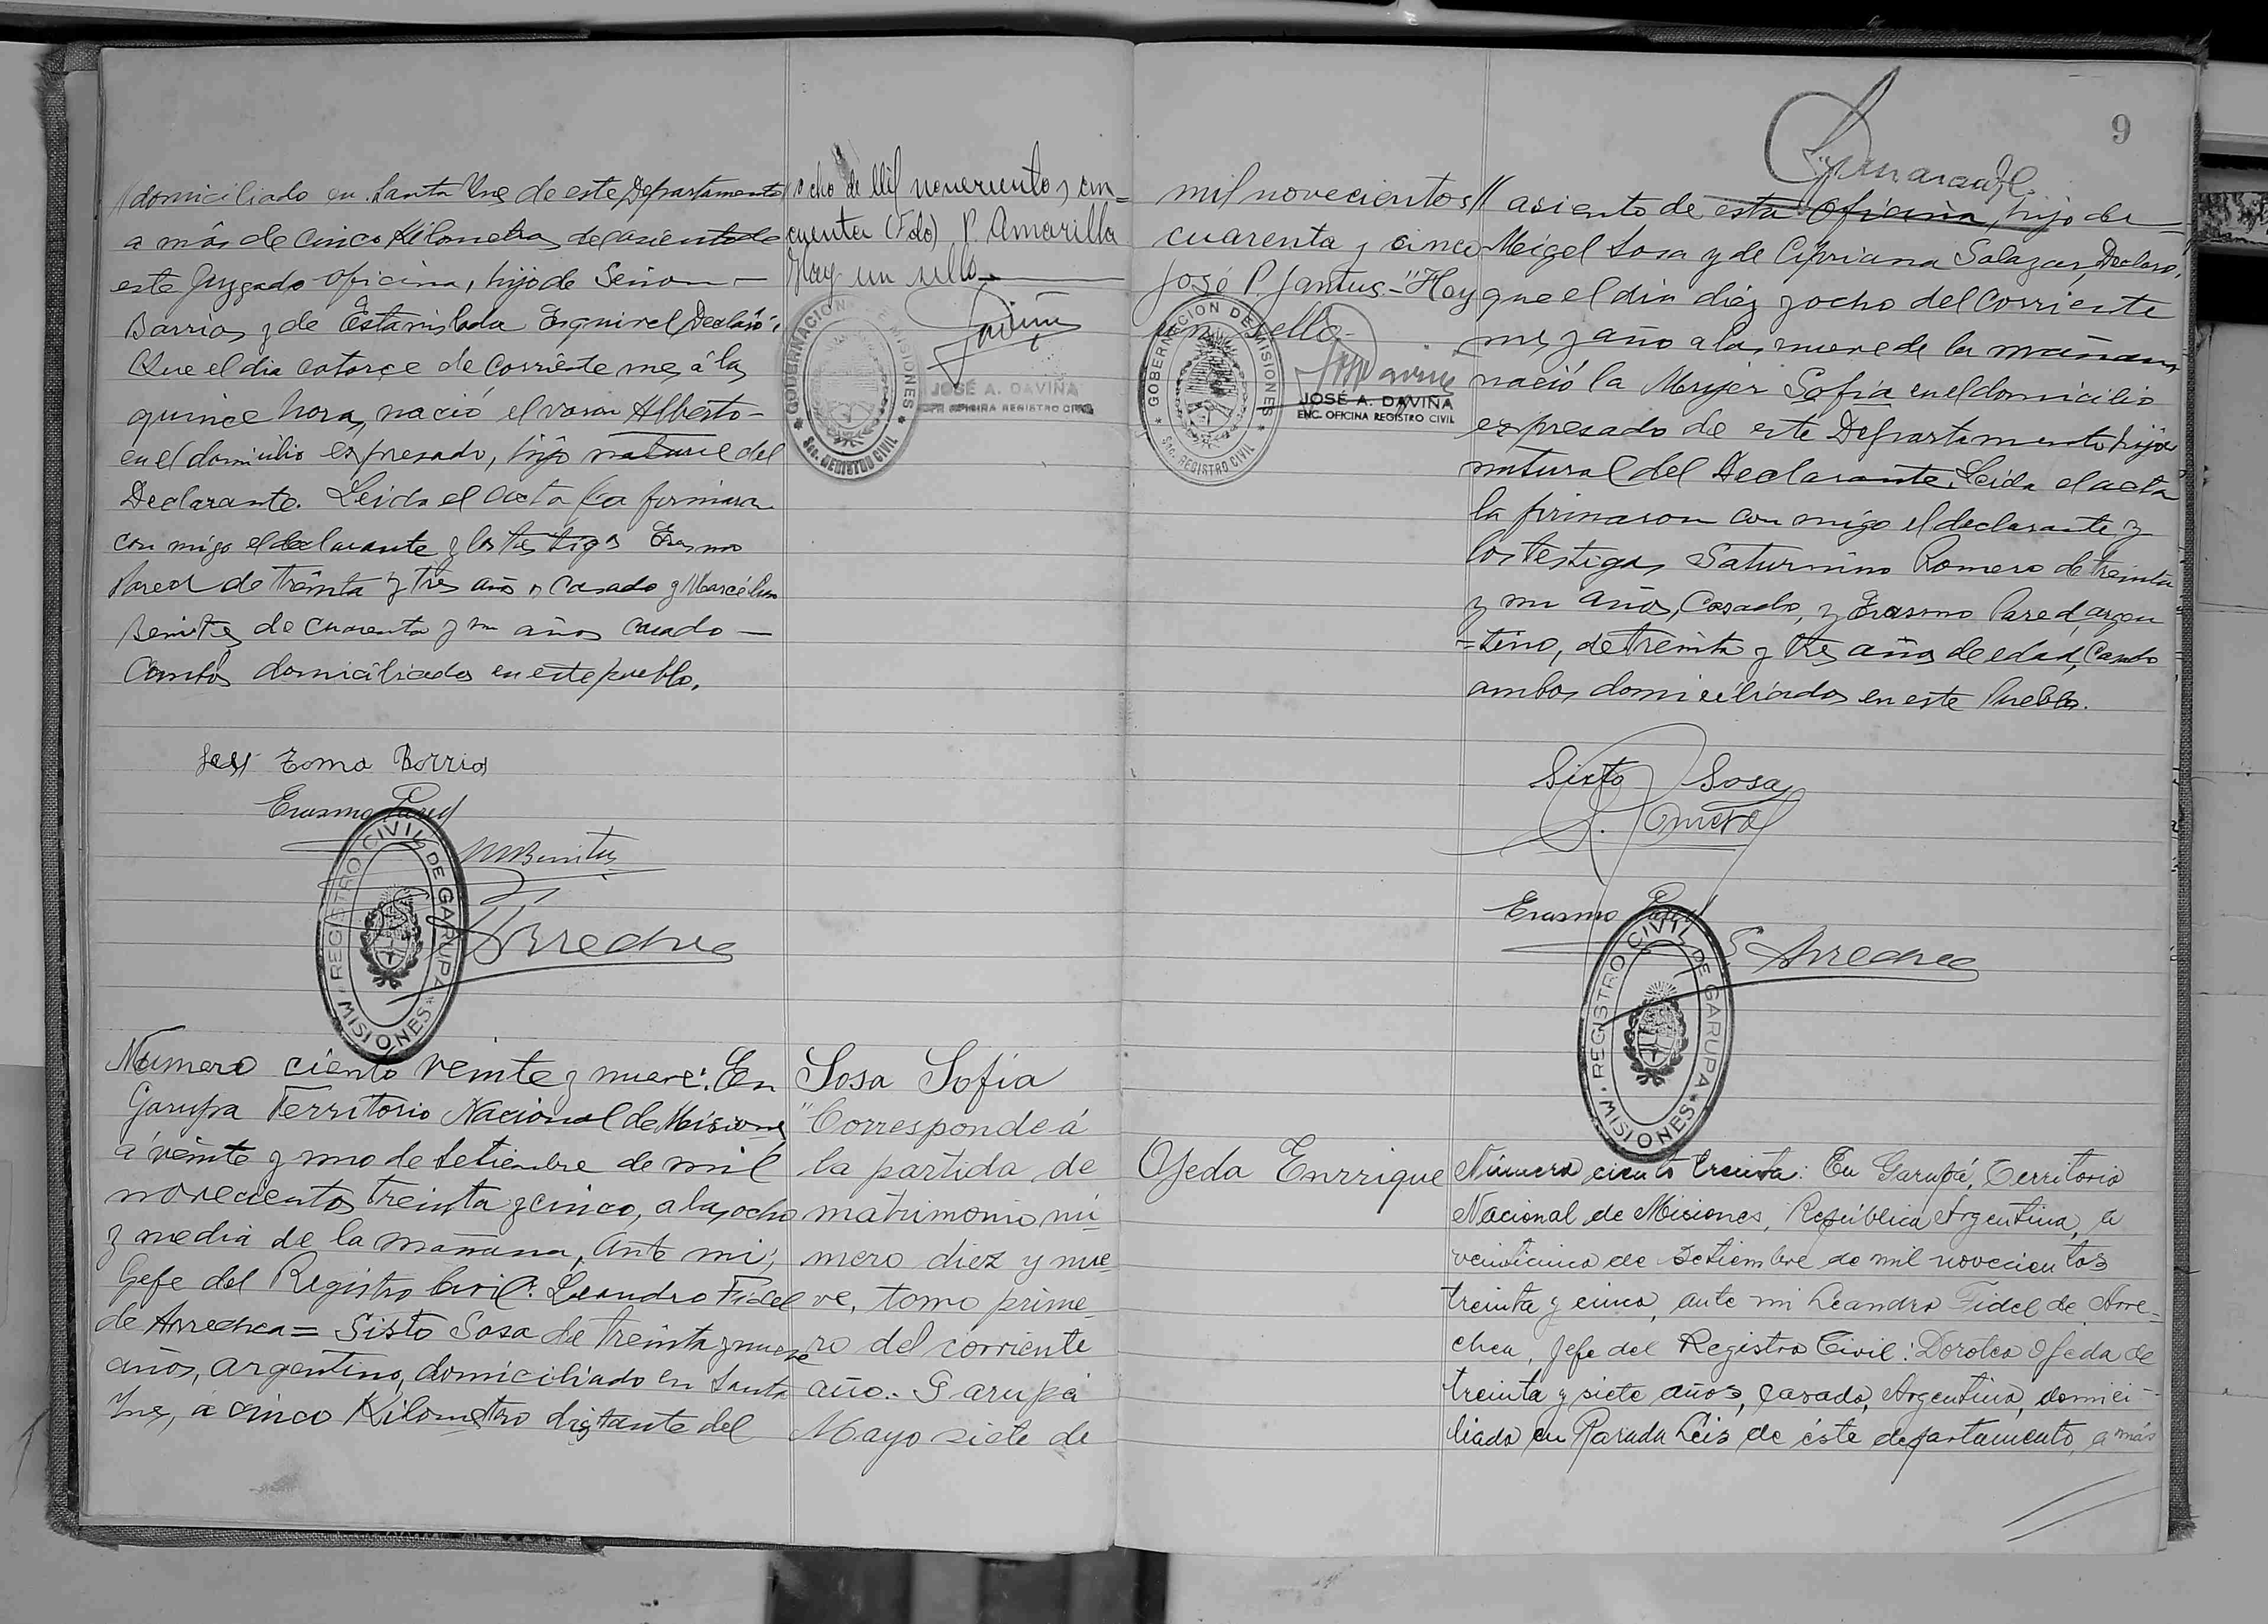 9
domiciliado en Santa Ines de este Departamento
a más de cinco Kilometros del asiento de
este Juzgado oficina, hijo de Simon —
Barrios y de Estanislada Esquivel Declaró:
Que el dia catorce de corriente mes á las
quince horas, nació el varon Alberto —
en el domicilio expresado, hijo natural del
Declarante. Leida el acta la firmaron
con migo el declarante y los testigos Erasmo
Pared de treinta y tres años casado y Marcélino
Benites de cuarenta y un años casado —
ambos domiciliados en este pueblo.
Toma Barrios
Erasmo Pared
M Benites
Arrechea
REGISTRO CIVIL DE GARUPA
MISIONES
ocho de Mil novecientos cin=
cuenta (Fdo) P. Amarilla
Hay un sello
GOBERNACION DE MISIONES
Sec. REGISTRO CIVIL
JOSÉ A. DAVIÑA
OFICINA REGISTRO CIVIL
Numero ciento veinte y nueve: En
Garupa Territorio Nacional de Misiones
a veinte y uno de Setiembre de mil
novecientos treinta y cinco, a las ocho
y media de la mañana, ante mi,
Gefe del Registro Civil: Leandro Fidel
de Arrechea = Sisto Sosa de treinta y nueve
años, argentino, domiciliado en Santa
Ines, á cinco Kilometro distante del
Sosa Sofía
"Corresponde á
la partida de
matrimonio nú
mero diez y nue=
ve, tomo prime=
ro del corriente
año.- Garupá
Mayo siete de
mil novecientos
cuarenta y cinco
José P. Jantus - "Hay
un sello.-
GOBERNACION DE MISIONES
Sec. REGISTRO CIVIL
JOSÉ A. DAVIÑA
ENC. OFICINA REGISTRO CIVIL
asiento de esta oficina, hijo de
Meigel Sosa y de Cipriana Salazar, Declaro,
que el dia diez y ocho del corriente
mes y año a las nueve de la mañana
nació la Mujer Sofia en el domicilio
expresado de este Departamento hija
natural del Declarante. Leida el acta
la firmaron con migo el declarante y
los testigos Saturnino Romero de treinta
y un años, Casado, y Erasmo Pared, argen
=tino, de treinta y tres años de edad, Casado
ambos domiciliados en este Pueblo.
Sixto Sosa
S. Romero
Erasmo Pared
Arrechea
REGISTRO CIVIL DE GARUPA
MISIONES
Ojeda Enrrique
Número ciento treinta: En Garupá, Territorio
Nacional de Misiones, República Argentina, a
veinticinco de Setiembre de mil novecientos
treinta y cinco, ante mi Leandro Fidel de Arre-
chea, Jefe del Registro Civil: Doroteo Ojeda de
treinta y siete años, casado, Argentino, domici-
liado en Parada Leis de éste departamento, a más